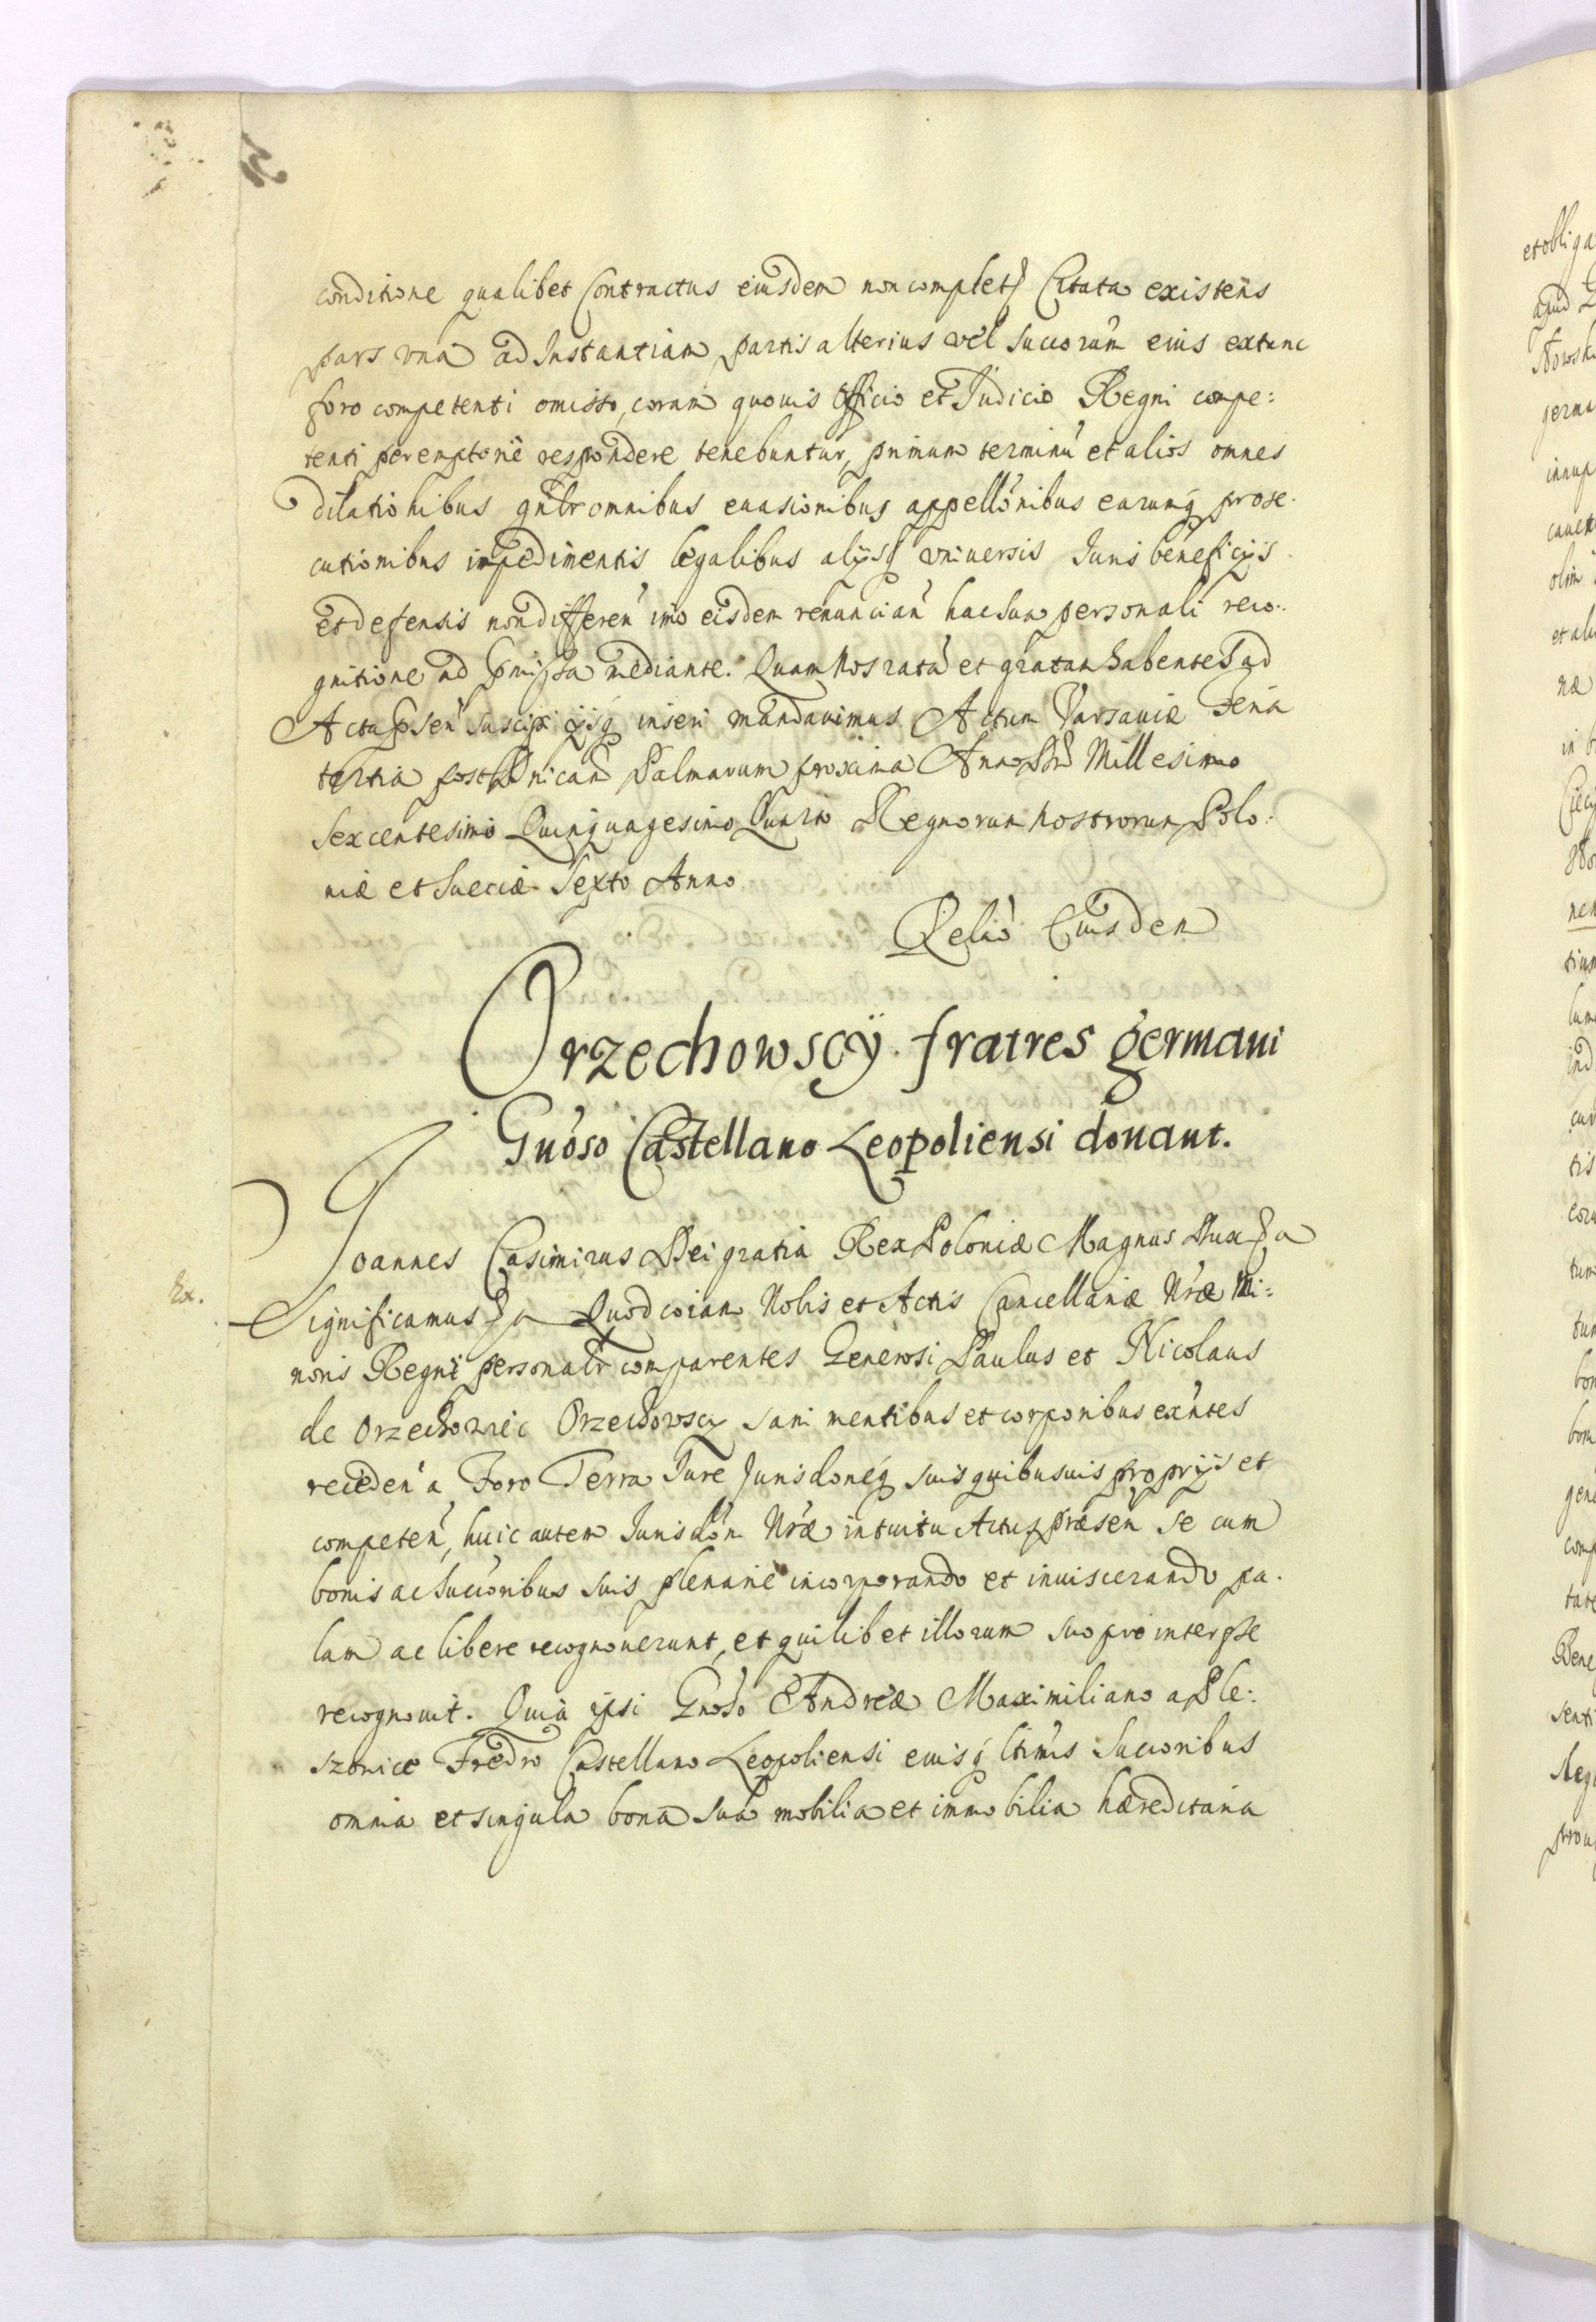 conditione qualibet Contractus eiusdem non complet Citata existens
pars una ad Instantiam partis alterius vel succorum eius extunc
foro competenti omisso, coram quovis Officio et Iudicio Regni compe:
tenti peremptorie respondere tenebuntur, primum terminu et alios omnes
dilationibus gnlr omnibus evasionibus appellonibus earumq prose-
cutionibus impedimentis legalibus alijsq universis Iuris beneficijs
et defensis non differen imo eisdem renuncian hac sua personali reco-
gnitione ad pmissa mediante. Quam Nos rata et gratam habentes ad
Acta psen suscipi ijsq inseri mandavimus Actum Varsaviæ Feria
tertia post Dnicam Palmarum proxima Anno Dni Millesimo
Sexcentesimo Quinquagesimo Quarto Regnorum Nostrorum Polo:
niæ et Sueciæ Sexto Anno
Relio Eiusdem
Orzechowscÿ fratres germani
Gnoso Castellano Leopoliensi donant.
Ioannes Casimirus Dei gratia Rex Poloniæ Magnus Dux
Ex.
Significamus Quod coram Nobis et Actis Cancellariæ Nræ Mi:
noris Regni personalr comparentes Generosi Paulus et Nicolaus
de Orzechowiec Orzechowscy sani mentibus et corporibus exntes
receden a Foro Terra Iure Jurisdoneq suis quibusuis proprijs et
competen, huic autem Iurisdon Nræ intuitu Actus præsen se cum
bonis ac succoribus suis plenarie incorporando et inviscerando pa-
lam ac libere recognoverunt, et quilibet illorum suo pro interesse
recognovit. Quia ipsi Gnoso Andreæ Maximiliano a Ple:
szowice Fredro Castellano Leopoliensi eiusq ltimis Succoribus
omnia et singula bona sua mobilia et immobilia hæreditaria